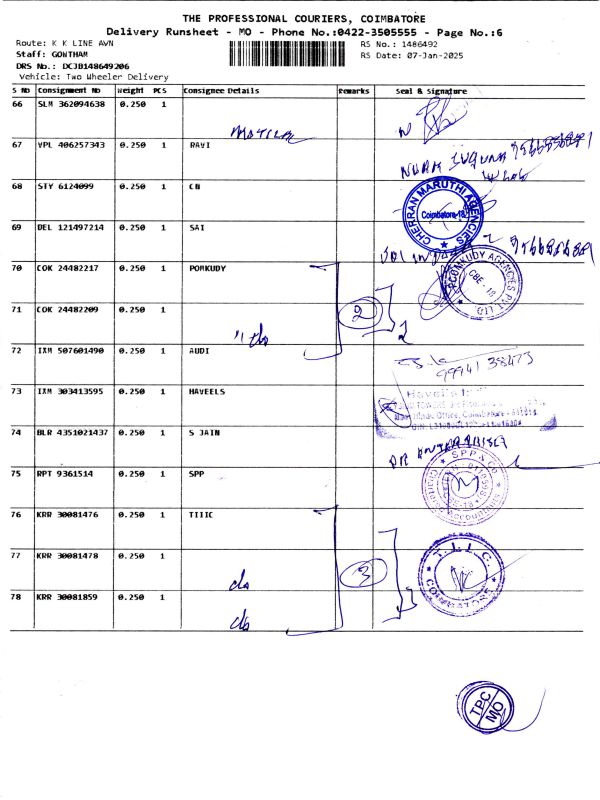 THE PROFESSIONAL COURIERS, COIMBATORE
Delivery Runsheet - MO - Phone No.:0422-3505555 - Page No.:6
Route: K K LINE AVN
RS No.: 1486492
Staff: GOWTHAM
RS Date: 07-Jan-2025
DRS No.: DCJB148649206
Vehicle: Two Wheeler Delivery
S No Consignment No Weight PCS Consignee Details Remarks Seal & Signature
66 SLM 362094638 0.250 1
67 VPL 406257343 0.250 1 RAVI
68 STY 6124099 0.250 1 CN
CHERRAN MARUTHI AGENCIES
Coimbatore-18
69 DEL 121497214 0.250 1 SAI
70 COK 24482217 0.250 1 POMKUDY
AGENCIES PVT LTD
CBE - 18
71 COK 24482209 0.250 1
2 2
72 IXM 507601490 0.250 1 AUDI
99941 38473
73 IXM 303413595 0.250 1 HAVEELS
Office, Coimbatore - 641018
74 BLR 4351021437 0.250 1 S JAIN
75 RPT 9361514 0.250 1 SPP
SPP & Co
76 KRR 30081476 0.250 1 TIIIC
77 KRR 30081478 0.250 1
do
3
T.I.I.C.
COIMBATORE
78 KRR 30081859 0.250 1
do
TPC
MO